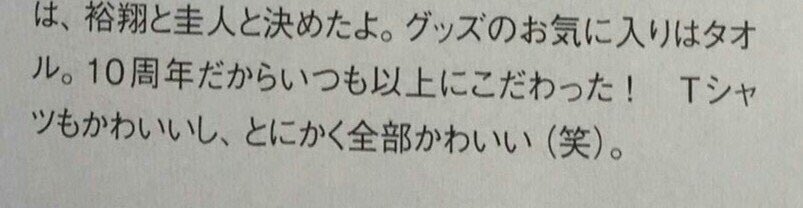 は、裕翔と圭人と決めたよ。グッズのお気に入りはタオ
ル。10周年だからいつも以上にこだわった！　Tシャ
ツもかわいいし、とにかく全部かわいい（笑）。